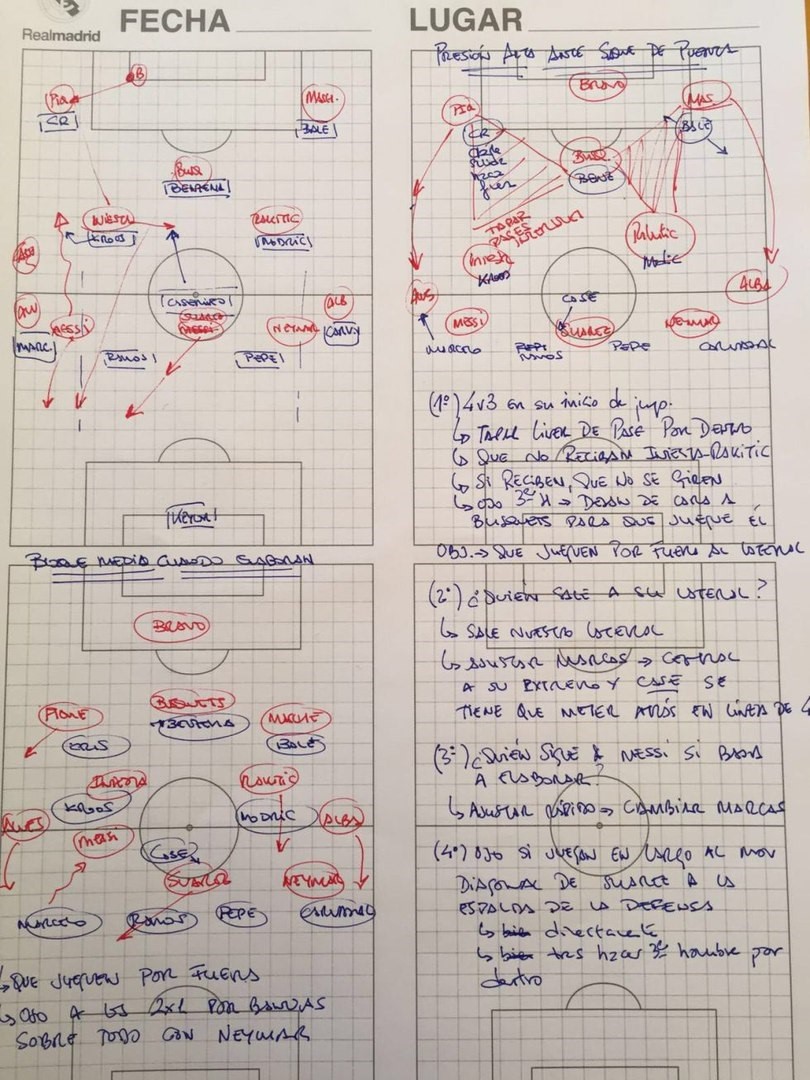 Realmadrid
FECHA
LUGAR
B
Piq
CR
MASCH.
BALE
BUSQ
BENZEMA
INIESTA
KROOS
RAKITIC
MODRIC
CASEMIRO
SUAREZ
ALB
MESSI
NEYMAR
MARC.
CARVJ
RAMOS
PEPE
KEYLOR
BLOQUE MEDIO CUANDO ELABORAN
BRAVO
PIQUE
BUSQUETS
BENZEMA
MASCHE
CRIS
BALE
INIESTA
KROOS
RAKITIC
MODRIC
ALVES
MESSI
CASE
ALBA
SUAREZ
NEYMAR
MARCELO
RAMOS
PEPE
CARVAJAL
↳ QUE JUEGUEN POR FUERA
↳ OJO A LOS 2x1 POR BANDAS
SOBRE TODO CON NEYMAR
PRESIÓN ALTA ANTE SAQUE DE PUERTA
BRAVO
PIQ
MAS.
CR
BALE
BUSQ.
BENZ
TAPAR
PASES
INTERIORES
INIEST
KROOS
Rakitic
Modric
ALBA
CASE
MESSI
SUAREZ
NEYMAR
MARCELO
RAMOS
PEPE
CARVAJAL
(1º) 4v3 en su inicio de jueg.
↳ TAPAR LINEA DE PASE POR DENTRO
↳ QUE NO RECIBAN INIESTA-RAKITIC
↳ SI RECIBEN, QUE NO SE GIREN
↳ OJO 3er H → DEJAN DE CARA A
BUSQUETS PARA QUE JUEGUE ÉL
OBJ. → QUE JUEGUEN POR FUERA AL LATERAL
(2º) ¿QUIÉN SALE A SU LATERAL?
↳ SALE NUESTRO LATERAL
↳ AJUSTAR MARCAS → CENTRAL
A SU EXTREMO Y CASE SE
TIENE QUE METER ATRÁS EN LÍNEA DE 4
(3º) ¿QUIÉN SIGUE A MESSI SI BAJA
A ELABORAR?
↳ AJUSTAR RÁPIDO → CAMBIAR MARCAS
(4º) OJO SI JUEGAN EN LARGO AL MOV
DIAGONAL DE SUAREZ A LA
ESPALDA DE LA DEFENSA
↳ bien directamente
↳ bien tras hzar 3er hombre por
dentro